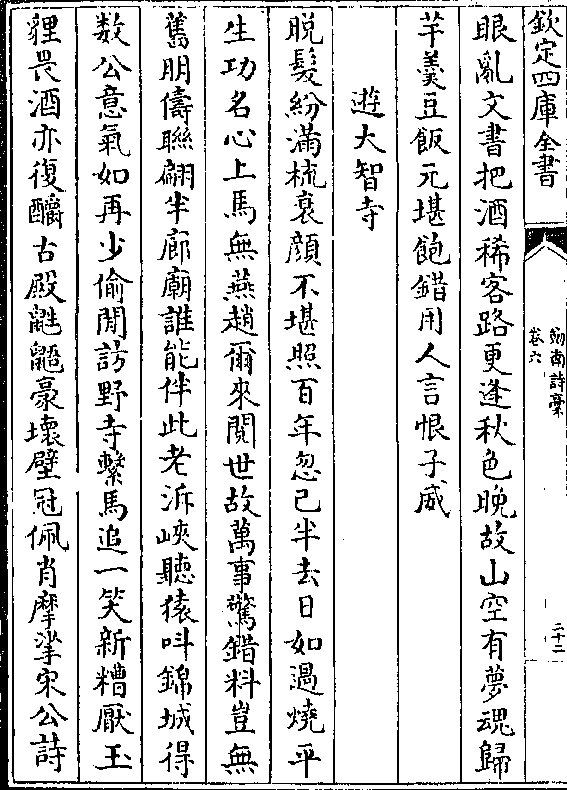 欽定四庫全書
劍南詩藁
卷六
二十二
眼亂文書把酒稀客路更逢秋色晚故山空有夢魂歸
芋羮豆飯元堪飽錯用人言恨子威
遊大智寺
脱髮紛滿梳衰顔不堪照百年忽已半去日如過燒平
生功名心上馬無燕趙爾來閱世故萬事驚錯料豈無
舊朋儔聯翩半廊廟誰能伴此老泝峽聽猿呌錦城得
数公意氣如再少偷閒訪野寺繫馬追一笑新糟厭玉
貍畏酒亦復釂古殿鼪鼯豪壞壁冠佩肖摩挲宋公詩